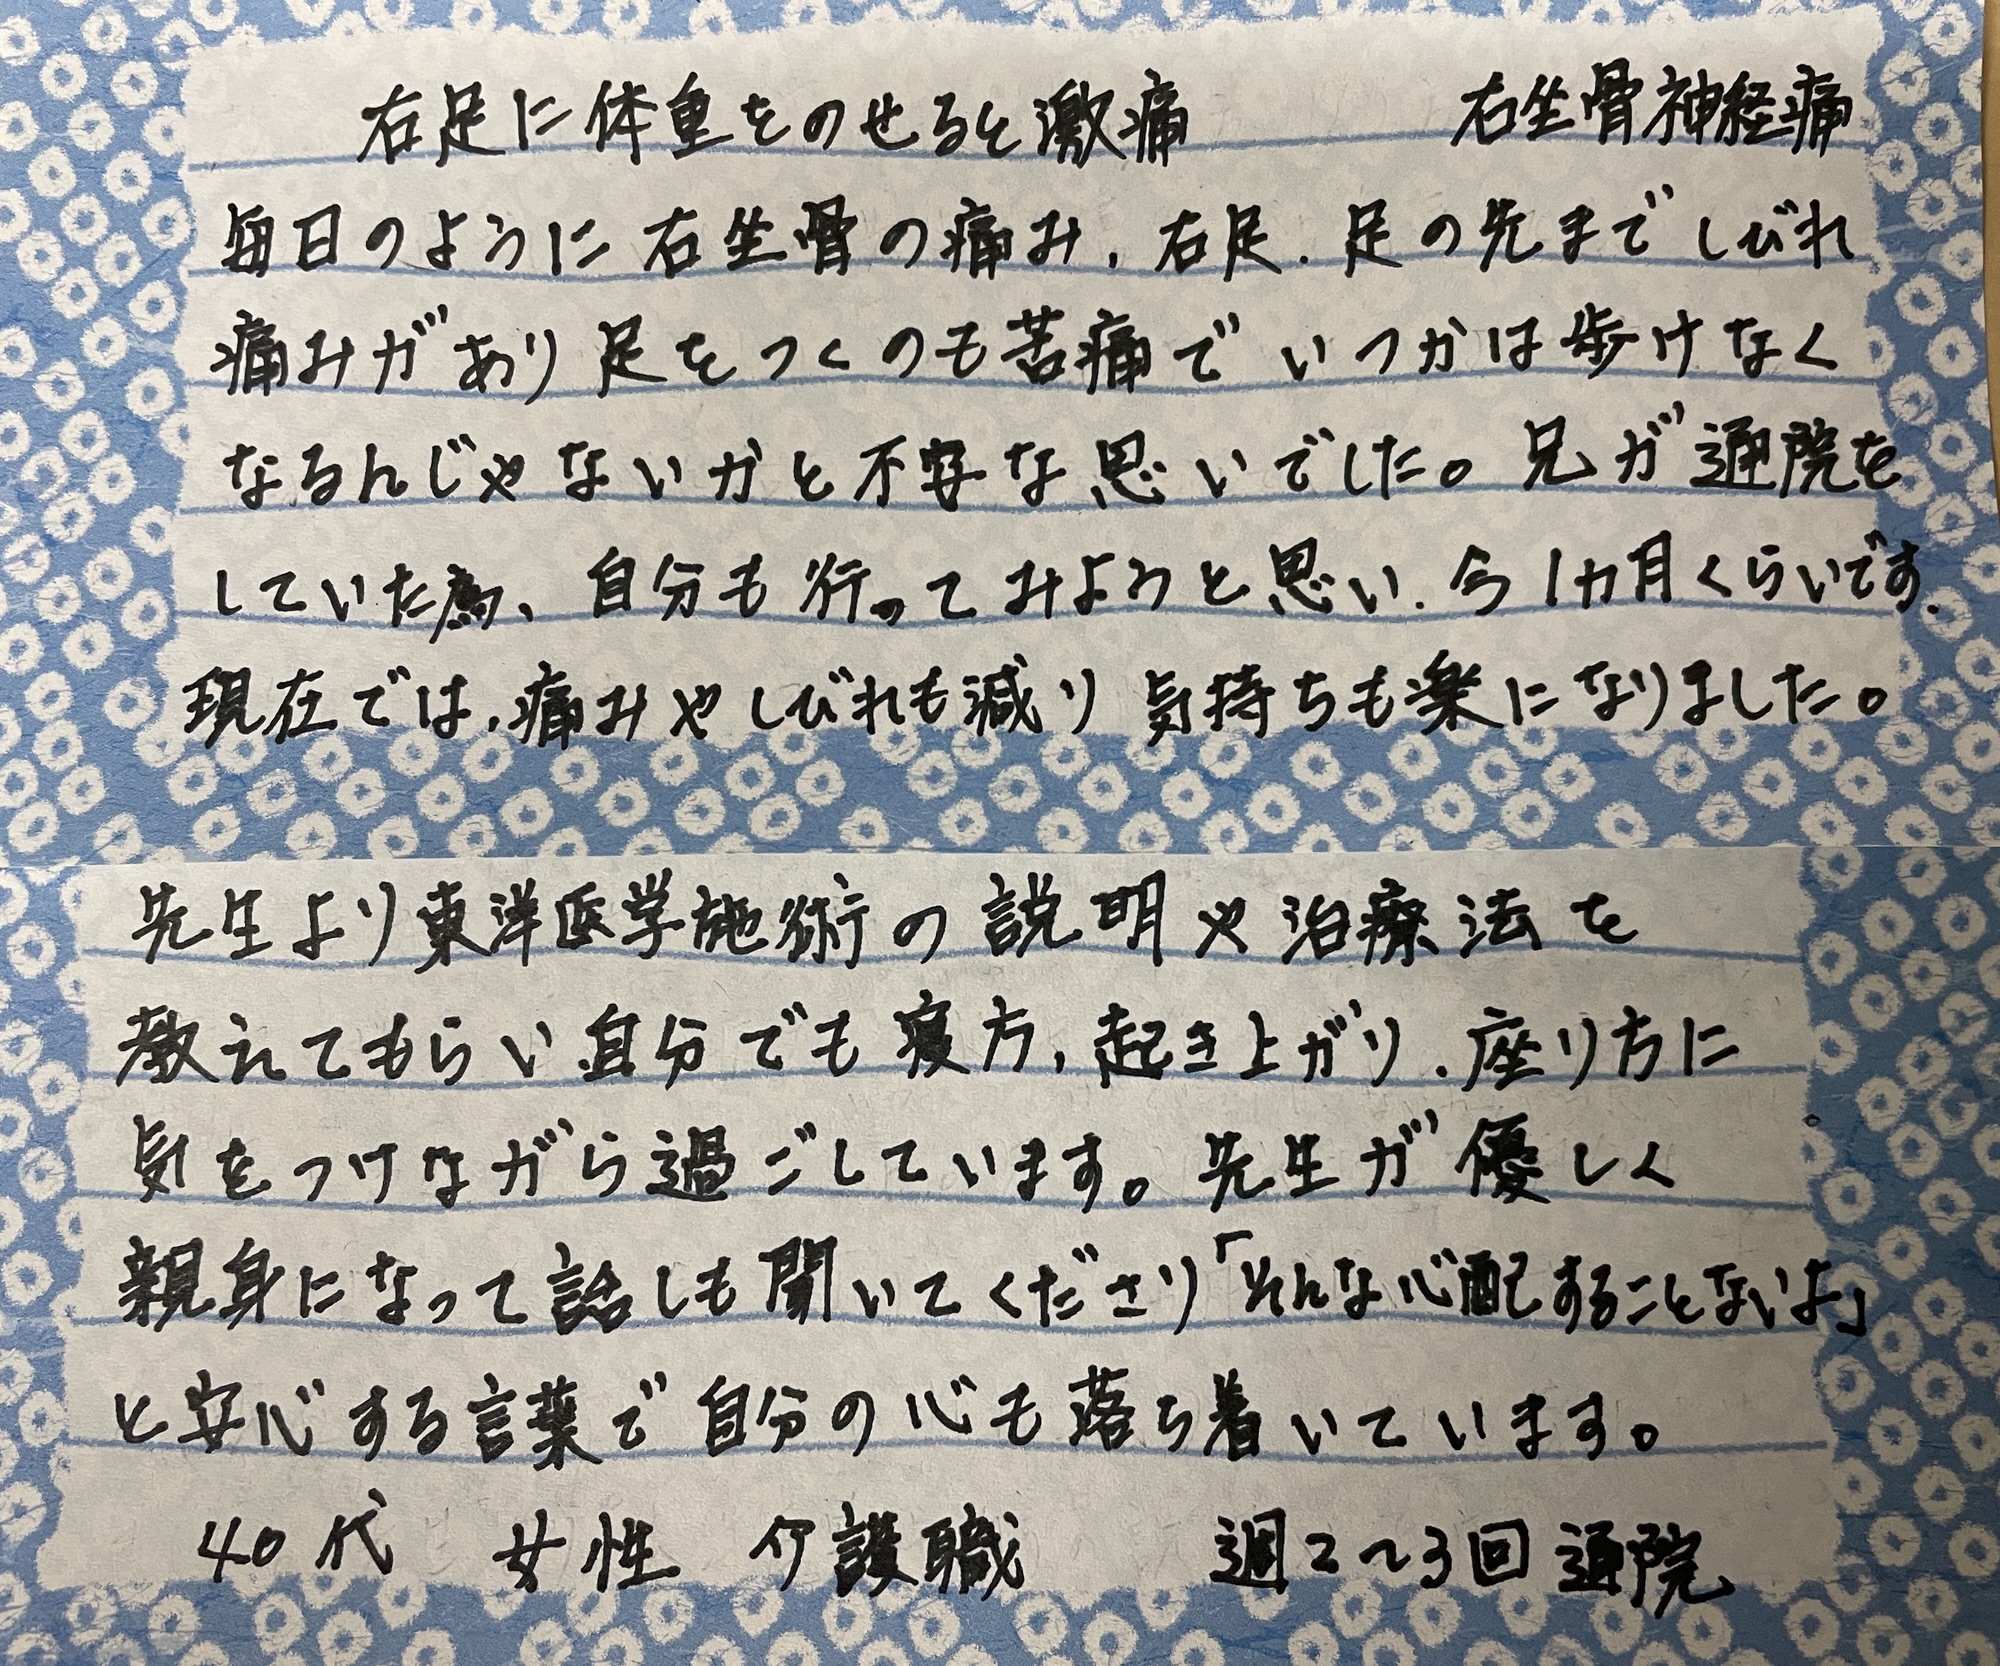 右足に体重をのせると激痛　右坐骨神経痛
毎日のように右坐骨の痛み、右足、足の先までしびれ
痛みがあり足をつくのも苦痛でいつかは歩けなく
なるんじゃないかと不安な思いでした。兄が通院を
していた為、自分も行ってみようと思い、今1カ月くらいです。
現在では、痛みやしびれも減り気持ちも楽になりました。
先生より東洋医学施術の説明や治療法を
教えてもらい自分でも寝方、起き上がり、座り方に
気をつけながら過ごしています。先生が優しく
親身になって話しも聞いてくださり「そんな心配することないよ」
と安心する言葉で自分の心も落ち着いています。
40代　女性　介護職　週2～3回通院